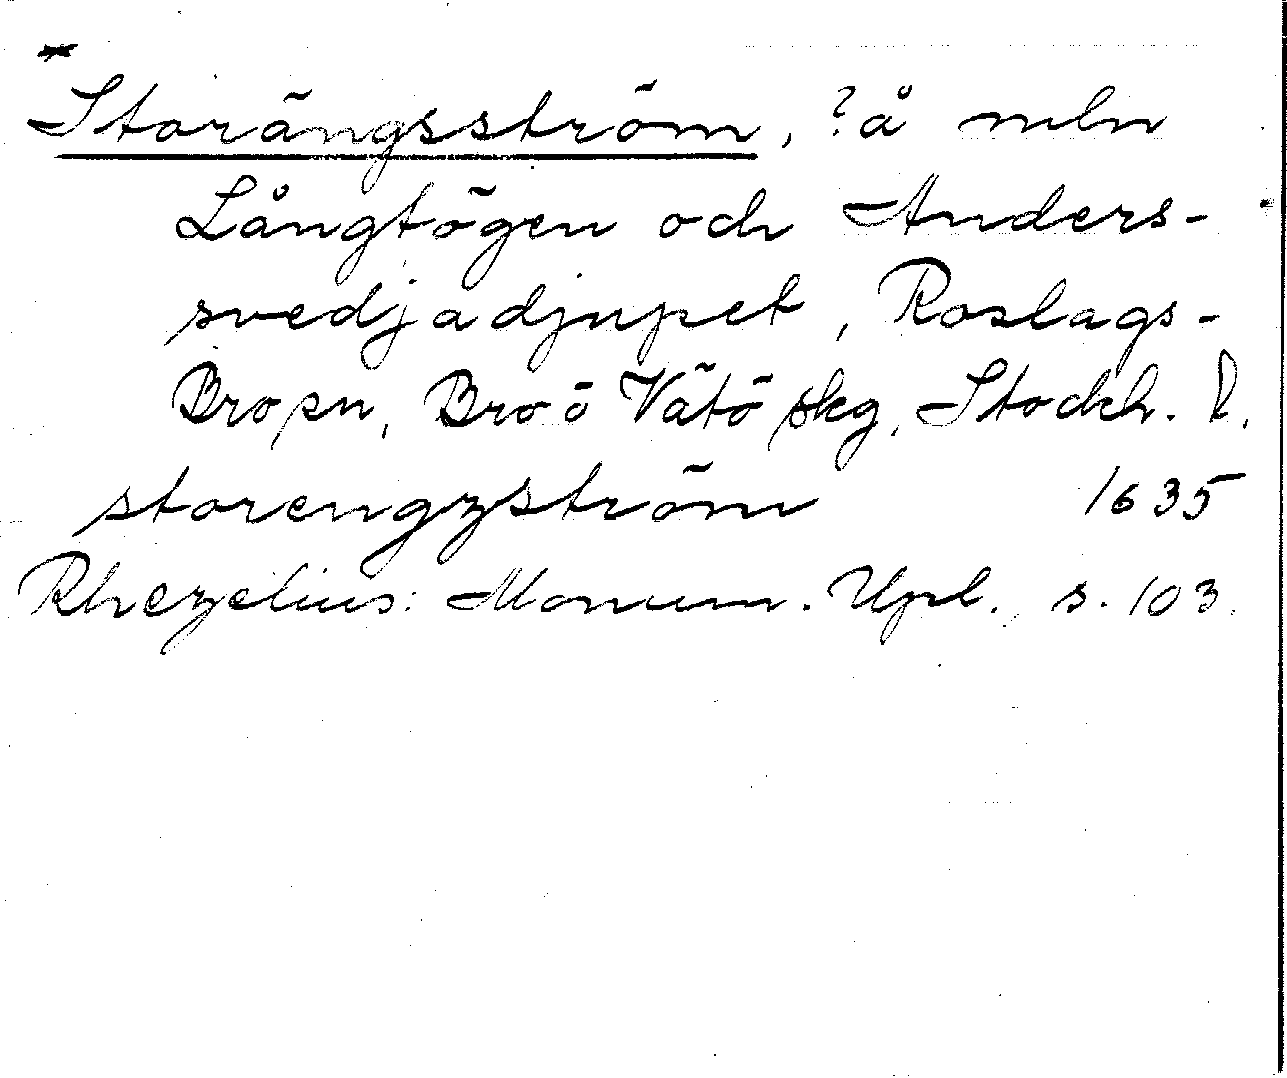 *
Storängsström, ?å mln
Långtögen och Anders-
svedjadjupet, Roslags-
Bro sn, Bro o Vätö skg, Stockh. l.
storengzström 1635
Rhezelius: Monum. Upl., s. 103.